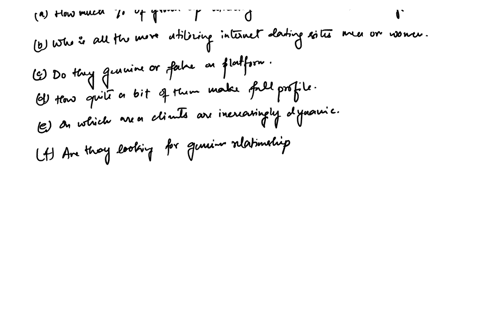 (a) How much % of
(b) Who is all the more utilizing internet dating sites men or women.
(c) Do they genuine or fake on platform.
(d) How quite a bit of them make full profile.
(e) On which area clients are increasingly dynamic.
(f) Are they looking for genuine relationship